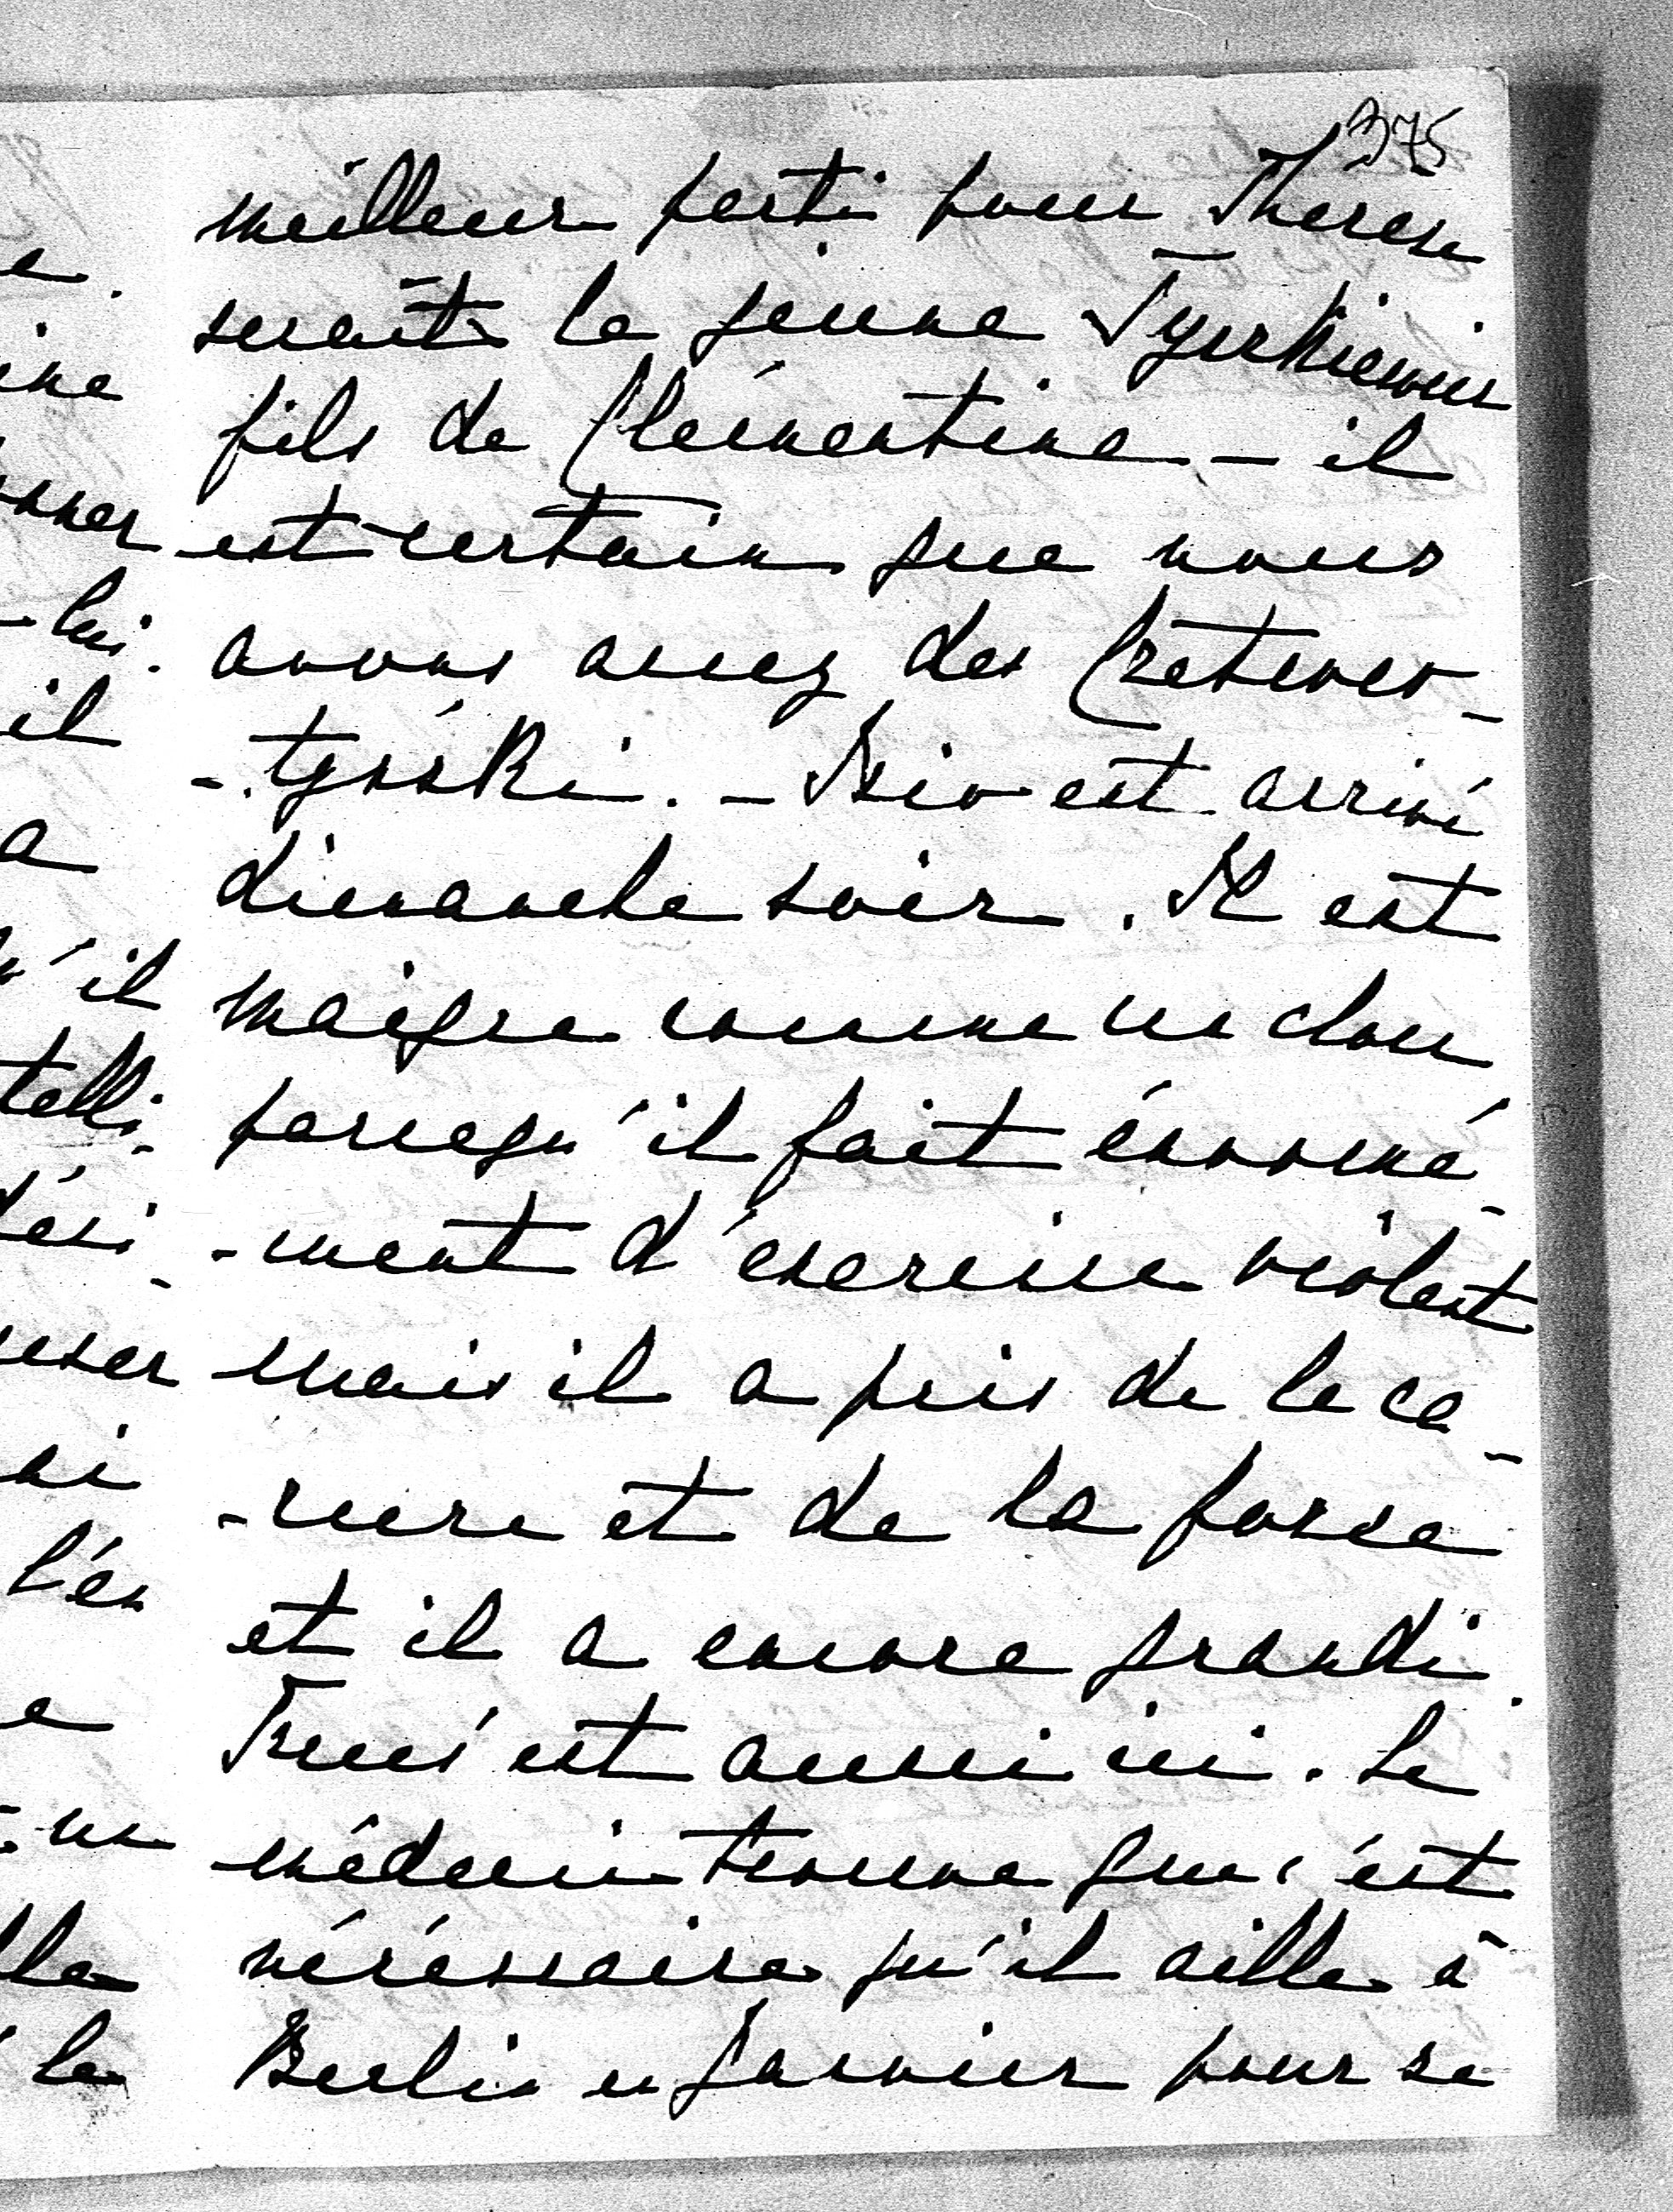 375
meilleur parti pour Thérèse
serait le jeune Tyszkiewicz
fils de Clémentine - il
est certain que nous
avons assez des Czetwer-
-tyński. - est arrivé
dimanche soir. Il est
maigre comme un clou
parcequ'il fait énormé-
-ment d'exercice violent
mais il a pris de la ca-
-rure et de la force
et il a encore grandi.
est aussi ici. Le
médecin trouve que c'est
nécéssaire qu'il aille à
Berlin en Janvier pour se